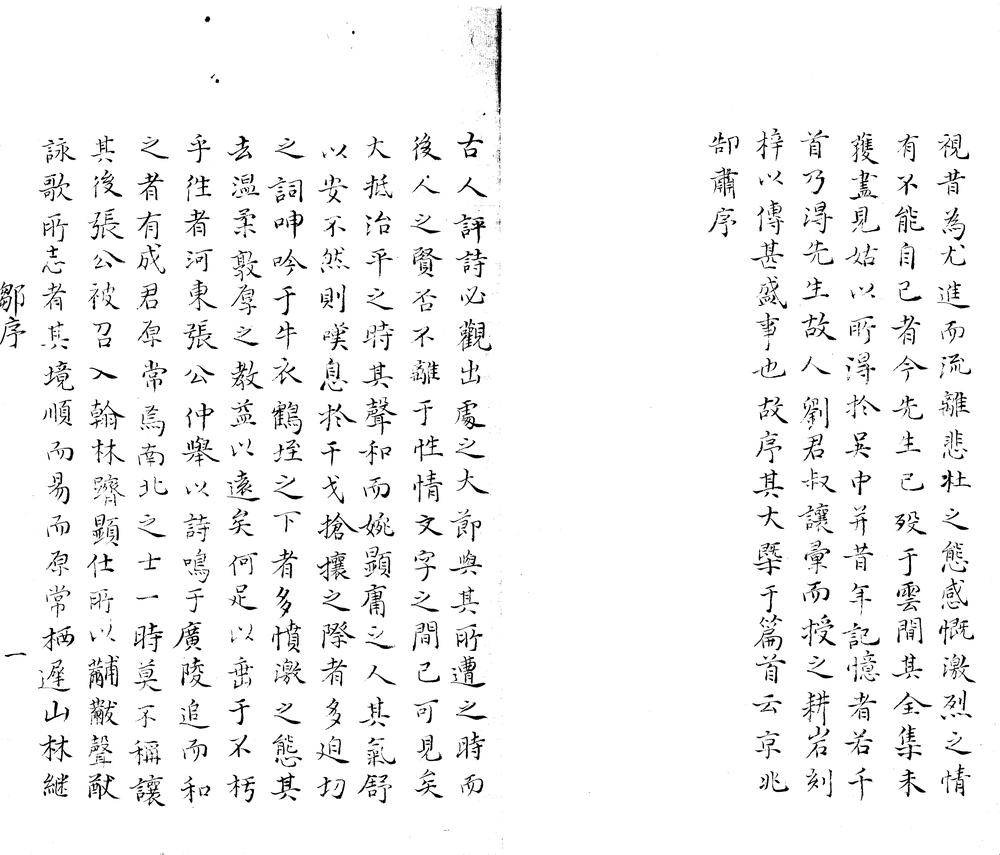 視昔為尤進而流離悲壯之態感慨激烈之情
有不能自已者今先生已殁于雲間其全集未
獲盡見姑以所淂於吴中并昔年記憶者若干
首乃淂先生故人劉君叔讓彚而授之耕岩刻
梓以傳甚盛事也故序其大槩于篇首云京兆
郜肅序
古人評詩必觀出處之大節與其所遭之時而
後人之賢否不離于性情文字之間已可見矣
大抵治平之時其聲和而婉顯庸之人其氣舒
以安不然則嘆息於干戈搶攘之際者多迫切
之詞呻吟于牛衣鶴垤之下者多憤激之態其
去溫柔敦厚之教益以遠矣何足以垂于不朽
乎徃者河東張公仲舉以詩鳴于廣陵追而和
之者有成君原常焉南北之士一時莫不稱讓
其後張公被召入翰林躋顯仕所以黼黻聲猷
詠歌所志者其境順而易而原常栖遲山林継
鄒序
一